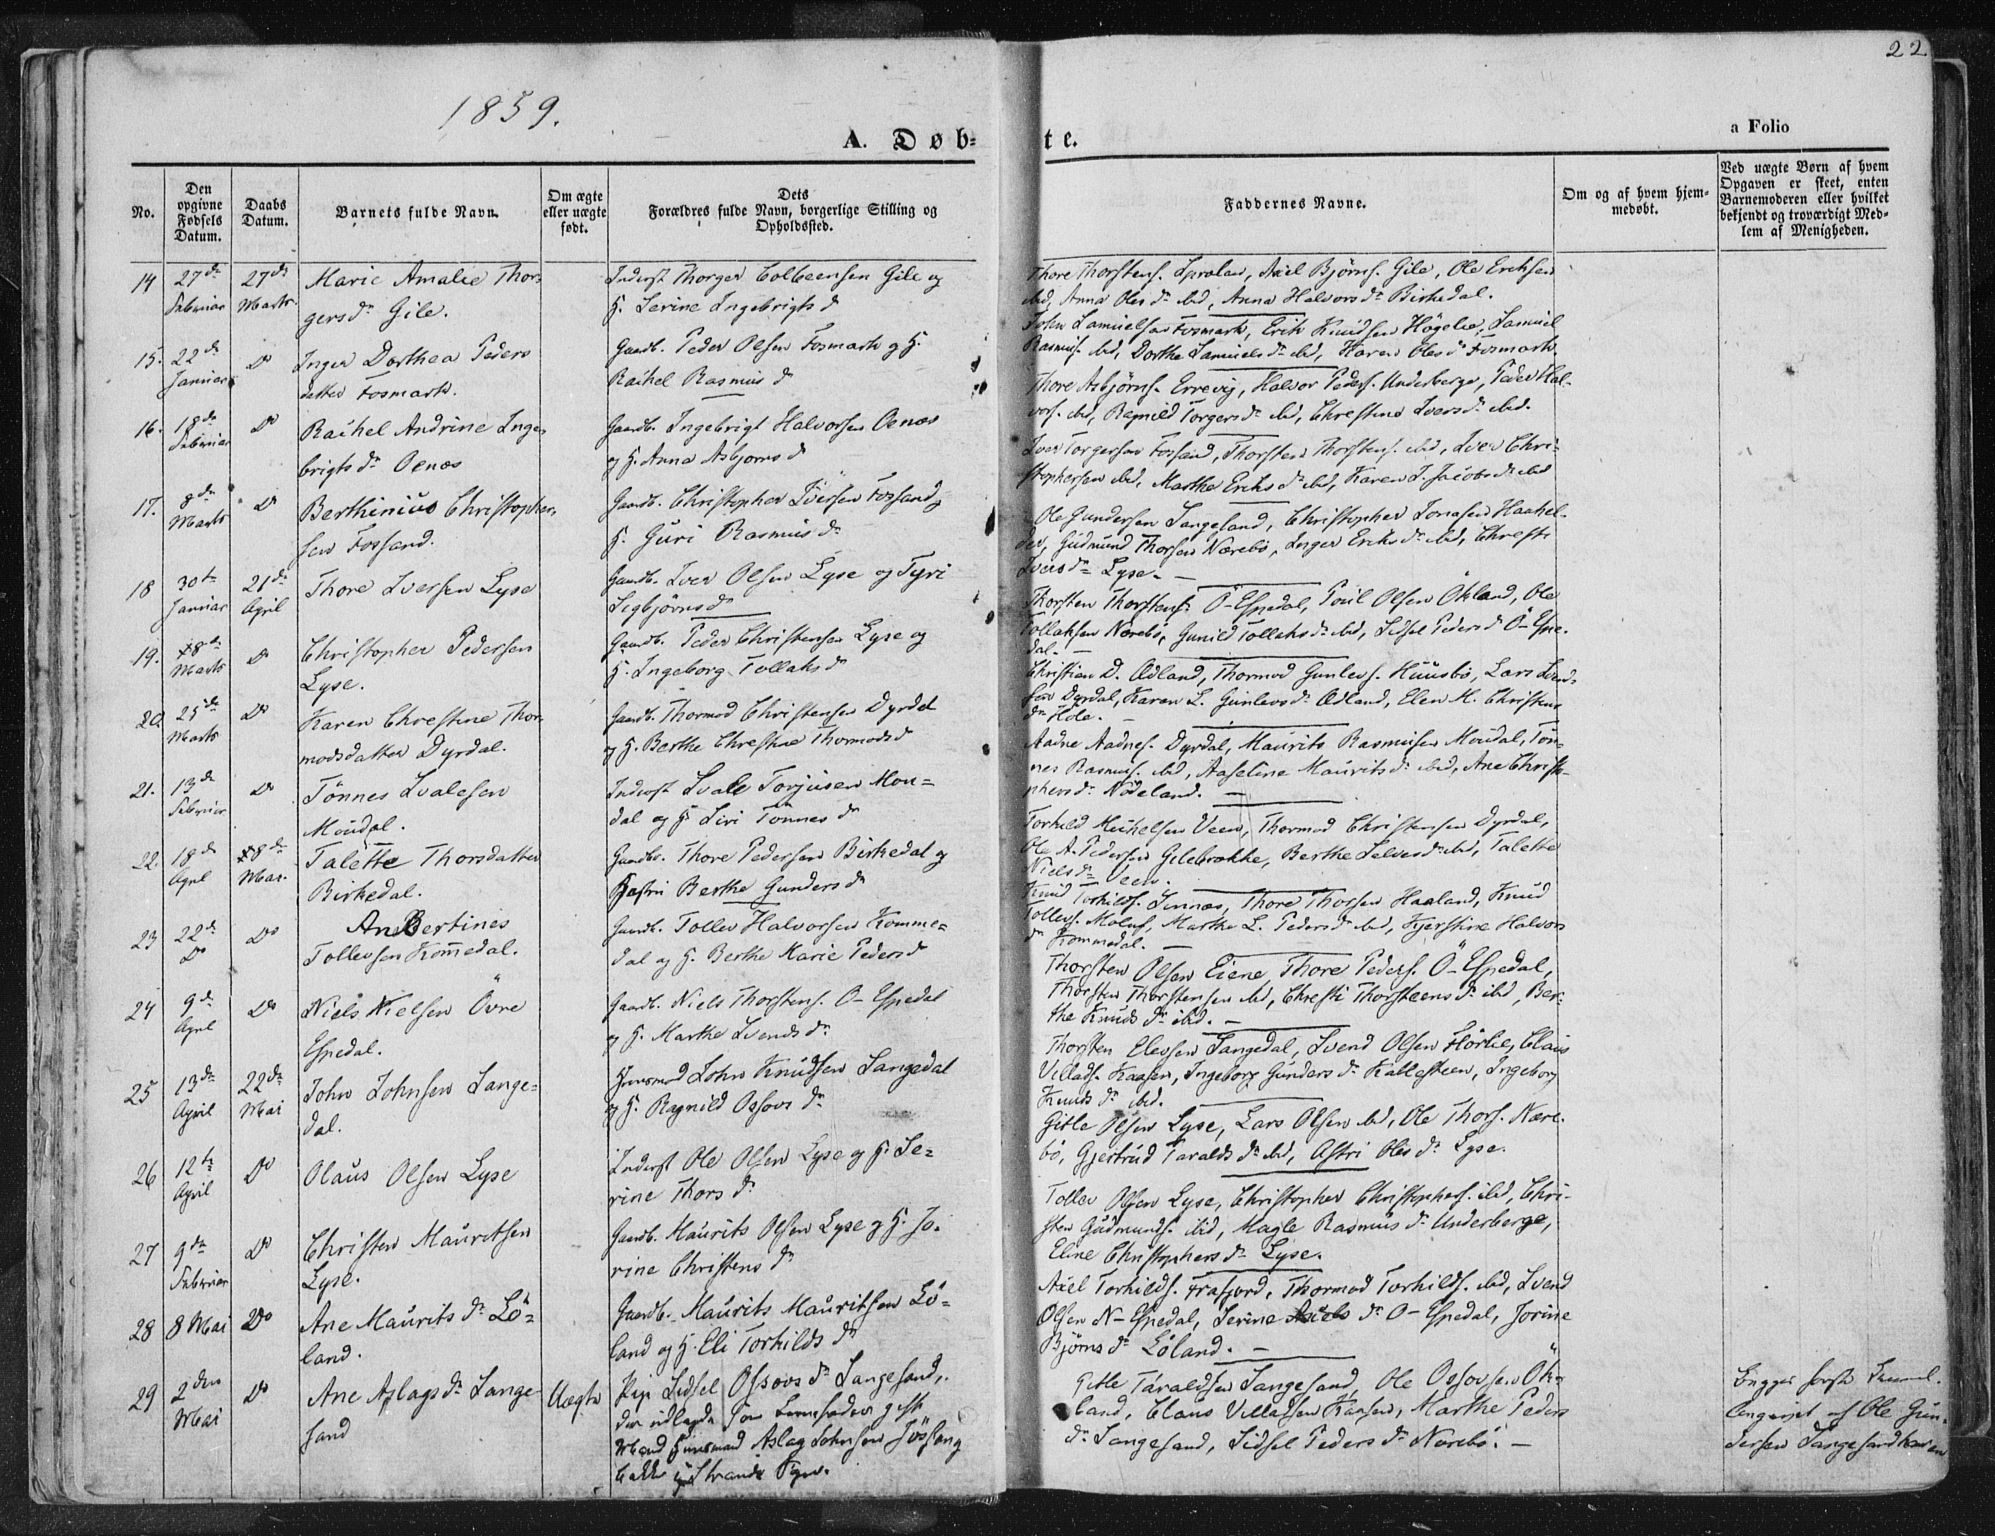 22
1859.
a Folio
A. Døb=
te.
No.
Den opgivne Fødsels Datum.
Daabs Datum.
Barnets fulde Navn.
Om ægte eller uægte født.
Dets Forældres fulde Navn, borgerlige Stilling og Opholdssted.
Faddernes Navne.
Om og af hvem hjemmedøbt.
Ved uægte Børn af hvem Opgaven er skeet, enten Barnemoderen eller hvilket bekjendt og troværdigt Medlem af Menigheden.
14
27de Februar
27de Marts
Marie Amalie Thor-
gersdr Gile.
Inderst Thorger Colbeensen Gile og
H. Serine Ingebrigtsdr
Thore Thorstens. , Axel Bjørns. Gile, Ole Eriksen
ibd, Anna Olesdr ibd, Anna Halvorsdr Birkedal.
15.
22de Januar
Do
Inger Dorthea Peders
datter Fosmark.
Gaardb. Peder Olsen Fosmark og H.
Rachel Rasmusdr
John Samuelsen Fosmark, Erik Knudsen Högelie, Samuel
Rasmus. ibd, Dorthe Samuelsdr ibd, Karen Olesdr Fosmark.
16.
18de Februar
Do
Rachel Andrine Inge-
brigtsdr Oenæs
Gaardb. Ingebrigt Halvorsen Oenæs
og H. Anna Asbjörnsdr
Thore Asbjörns. Errevig, Halvor Peders. Underberge, Peder Hal-
vors. ibd, Ragnild Torgersdr ibd, Christine Iversdr ibd.
17.
8de Marts
Do
Berthinius Christopher-
sen Fossand.
Gaardb. Christopher Iversen Fossand og
H. Guri Rasmusdr
Iver Torgersen Fossand, Thorsten Thorstens. ibd, Iver Chri-
stophersen ibd, Marthe Eriksdr ibd, Karen J. Jacobsdr ibd
18
30te Januar
21de April
Thore Iversen Lyse
Gaardb. Iver Olsen Lyse og Tyri
Sigbjörnsdr
Ole Gundersen Sangesand, Christopher Jonasen Haahel-
der, Gudmund Thorsen Nærebö, Inger Eriksdr ibd, Christi
Iversdr Lyse.
19.
8de Marts
Do
Christopher Pedersen
Lyse.
Gaardb. Peder Christensen Lyse og
H. Ingeborg Tollaksdr
Thorsten Thorstens. Ö-Espedal, Poul Olsen Ökland, Ole
Tollaksen Nærebö, Gunild Tollaksdr ibd, Sidsel Pedersdr Ö-Espe-
dal.
20.
25de Marts
Do
Karen Christine Thor-
modsdatter Dyrdal.
Gaardb. Thormod Christensen Dyrdal
og H. Berthe Christine Thormodsdr
Christian D. Ædland, Thormod Gunlevs. Huusbö, Lars Svend-
sen Dyrdal, Karen L. Gunlevsdr Ædland, Elen M. Christens
dr Hole.
21.
13de Februar
Do
Tönnes Svalesen
Moudal.
Inderst Svale Torjusen Mou=
dal og H. Siri Tönnesdr
Aadne Aadnes. Dyrdal, Maurits Rasmusen Moudal, Tön-
nes Rasmus. ibd, Aaseline Mauritsdr ibd, Ane Christo-
phersdr Nödeland.
22.
18de April
8de Mai.
Talette Thorsdatter
Birkedal.
Gaardb. Thore Pedersen Birkedal og
Hustru Berthe Gundersdr
Torkild Michelsen Veen, Thormod Christensen Dyrdal,
Ole A. Pedersen Gilebrække, Berthe Selvesdr ibd, Talette
Nielsdr Veen.
23
22de Do
Do
An Bertines
Tollevsen Komedal.
Gaardb. Tollev Halvorsen Komme=
dal og H. Berthe Marie Pedersdr
Knud Torkilds. Sinnæs, Thore Thorsen Haaland, Knud
Tollevs. Moluf, Marthe L. Pedersdr ibd, Kjerstine Halvors
dr Kommedal.
24
9de April
Do
Niels Nielsen Övre
Espedal.
Gaardb. Niels Thorstens. Ö-Espedal
og H. Marthe Svendsdr
Thorsten Olsen Eiene, Thore Peders. Ö-Espedal,
Thorsten Thorstensen ibd, Christi Thorsteensdr ibid, Ber-
the Knudsdr ibid.
25
13de April
22de Mai
John Johnsen Sange-
dal.
Huusmand John Knudsen Sangedal
og H. Ragnild Ossovsdr
Thorsten Elevsen Sangedal, Svend Olsen Hörlie, Claus
Villads. Kaasen, Ingeborg Gundersdr Kablesteen, Ingeborg
Knudsdr ibd.
26
12te April
Do
Olaus Olsen Lyse
Inderst Ole Olsen Lyse og H. Se=
rine Thorsdr
Gitle Olsen Lyse, Lars Olsen ibd, Ole Thors. Nære-
bö, Gjertrud Taraldsdr ibd, Astri Olesdr Lyse.
27
9de Februar
Do
Christen Mauritsen
Lyse.
Gaardb. Maurits Olsen Lyse og H. Jo-
rine Christensdr
Tollev Olsen Lyse, Christopher Christophers. ibd, Chri-
sten Gudmunds. ibid, Magle Rasmusdr Underberge,
Eline Christophersdr Lyse.
28
8 Mai
Do
Ane Mauritsdr Lö=
land.
Gaardb. Maurits Mauritsen Lö=
land og H. Eli Torkildsdr
Axel Torkilds. Frafjord, Thormod Torkilds. ibd, Svend
Olsen N-Espedal, Serine Axelsdr Ö-Espedal, Jorine
Bjørnsdr Löland.
29
2den Mai
Do
Ane Aslagsdr Sange-
sand
Uægte
Pige Sidsel Ossovsdr Sangesand,
der udlagde som Barnefader gift
Mand Huusmand Aslag Johnsen Jössang
bakke i Strands Sgn.
Gitle Taraldsen Sangesand, Ole Ossovsen Ök-
land, Claus Villadsen Kaasen, Marthe Peders
dr Sangesand, Sidsel Pedersdr Nærebö.
af Ole Gun-
dersen Sangesand